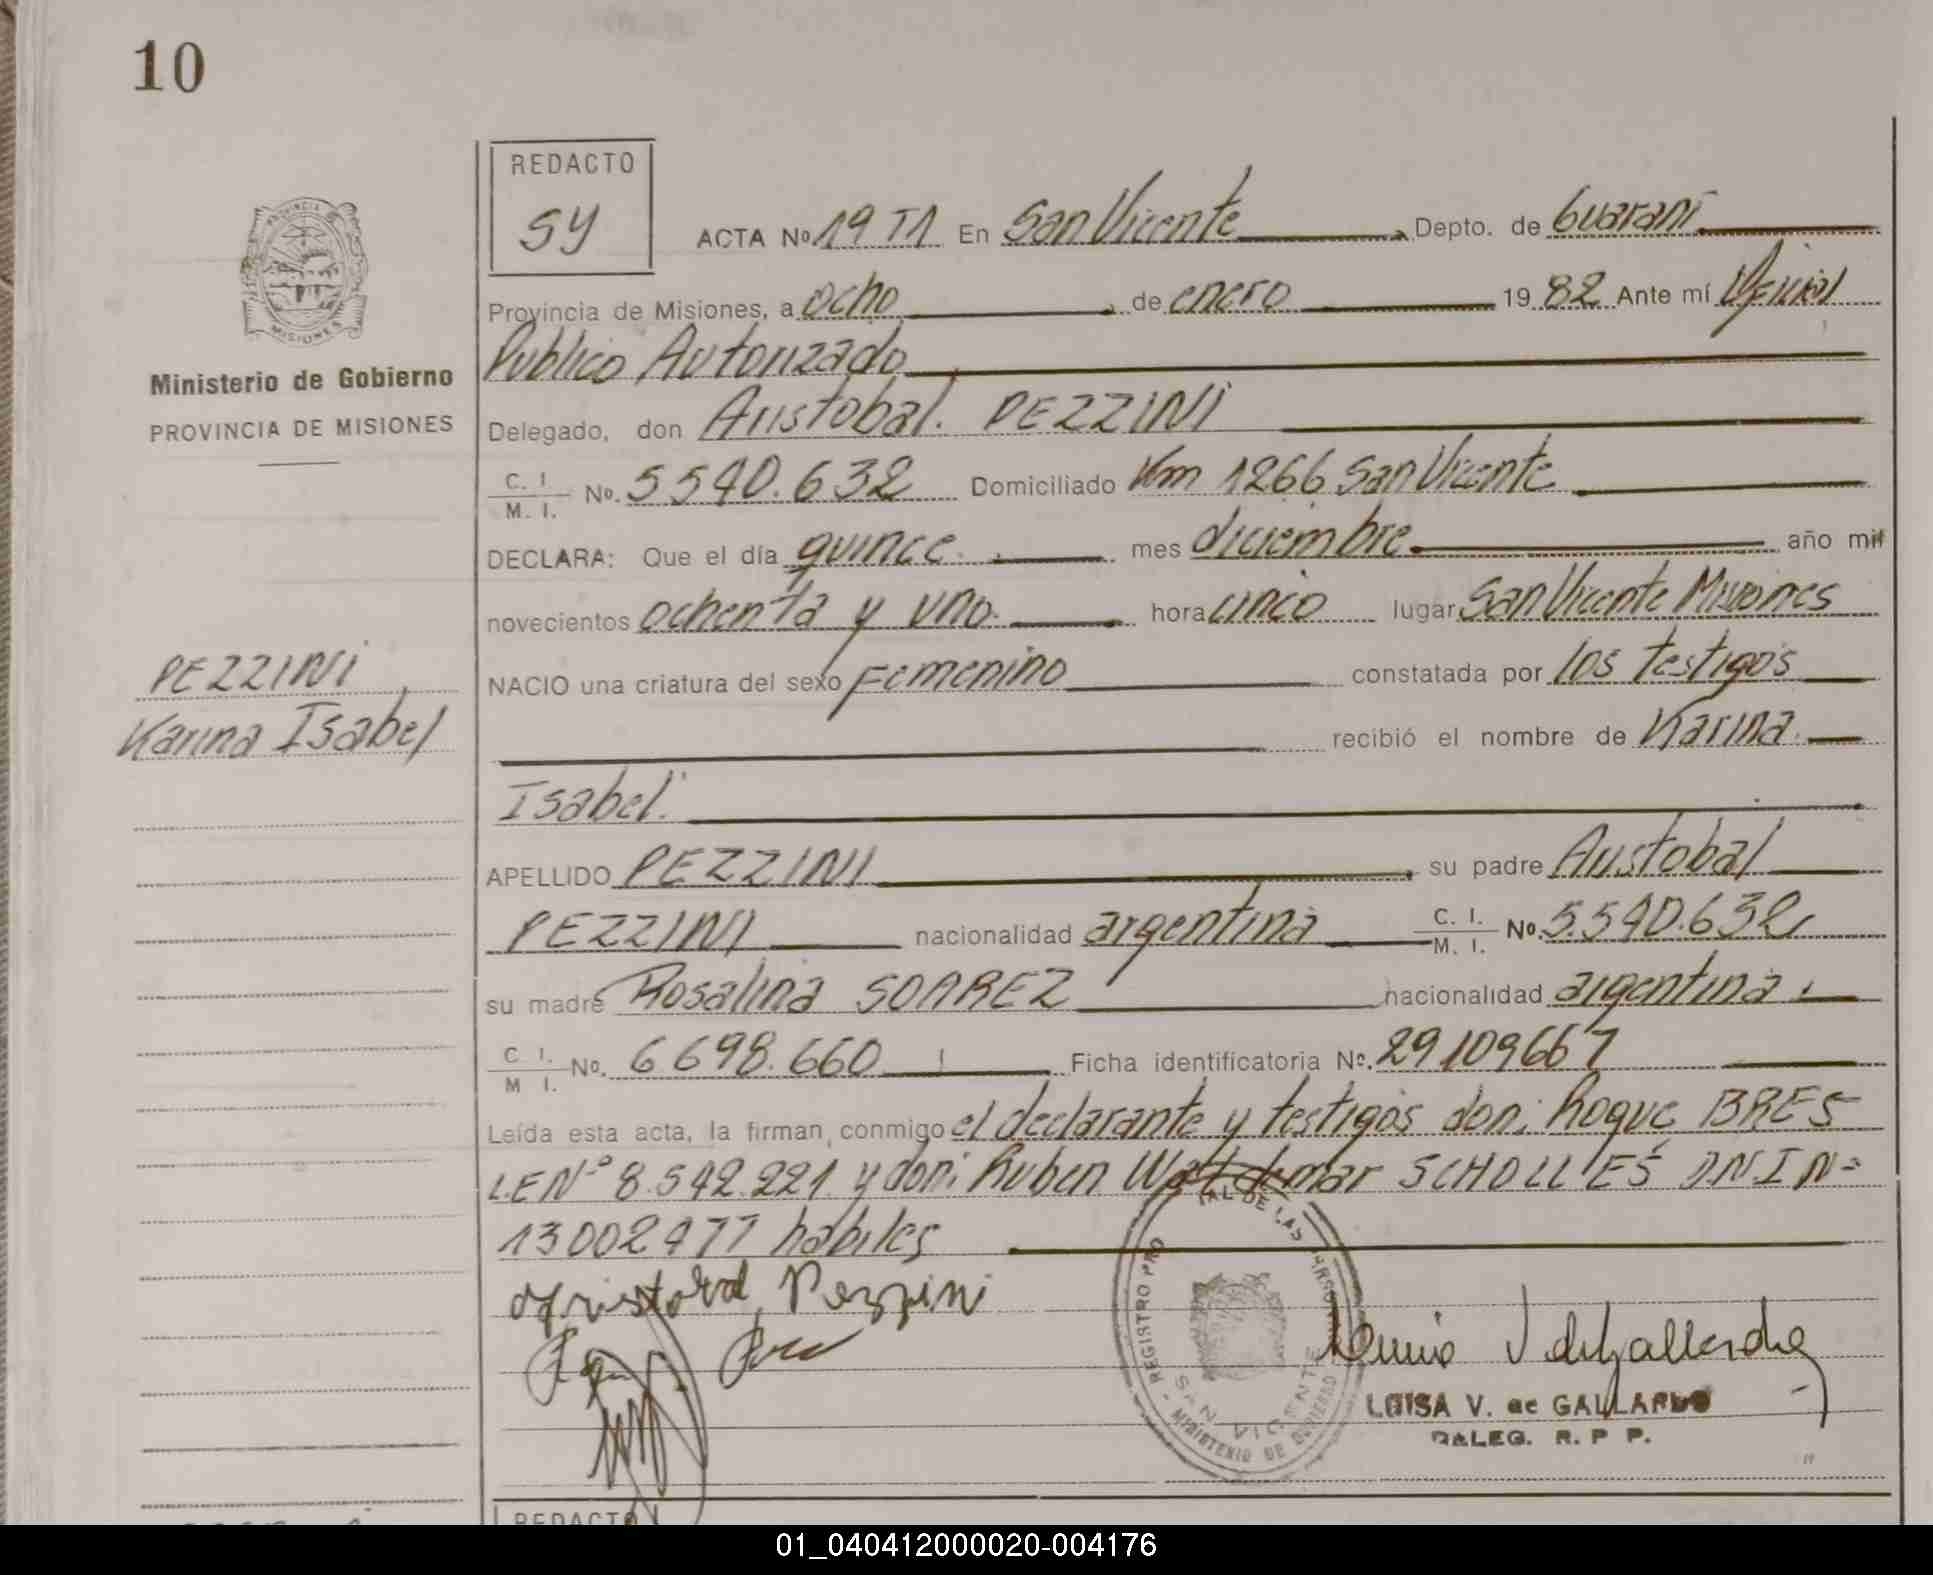 10
REDACTO
SY
ACTA Nº 19 T1 En San Vicente Depto. de Guaraní
Provincia de Misiones, a ocho de enero 1982 Ante mí Oficial
Publico Autorizado
Delegado, don Aristobal. PEZZINI
C. I. M. I. No. 5540.632 Domiciliado Km 1266 San Vicente
DECLARA: Que el día quince mes diciembre año mil
novecientos ochenta y uno hora cinco lugar San Vicente Misiones
NACIO una criatura del sexo Femenino constatada por los testigos
recibió el nombre de Karina
Isabel.
APELLIDO PEZZINI su padre Aristobal
PEZZINI nacionalidad argentina C. I. M. I. No. 5.540.632
su madre Rosalina SOAREZ nacionalidad argentina
C. I. M. I. No. 6698.660 Ficha identificatoria No. 29109667
Leída esta acta, la firman conmigo el declarante y testigos don: Roque BRES
L.E Nº 8.542.221 y don: Ruben Waldemar SCHOLLES D.N.I N=
13002977 habiles
Aristobal Pezzini
PROVINCIA
MISIONES
Ministerio de Gobierno
PROVINCIA DE MISIONES
PEZZINI
Karina Isabel
REGISTRO PRO AL DE LAS
SAN VICENTE
MINISTERIO DE GOBIERNO
LUISA V. de GALLARDO
DALEG. R. P P.
REDACTO
01_040412000020-004176